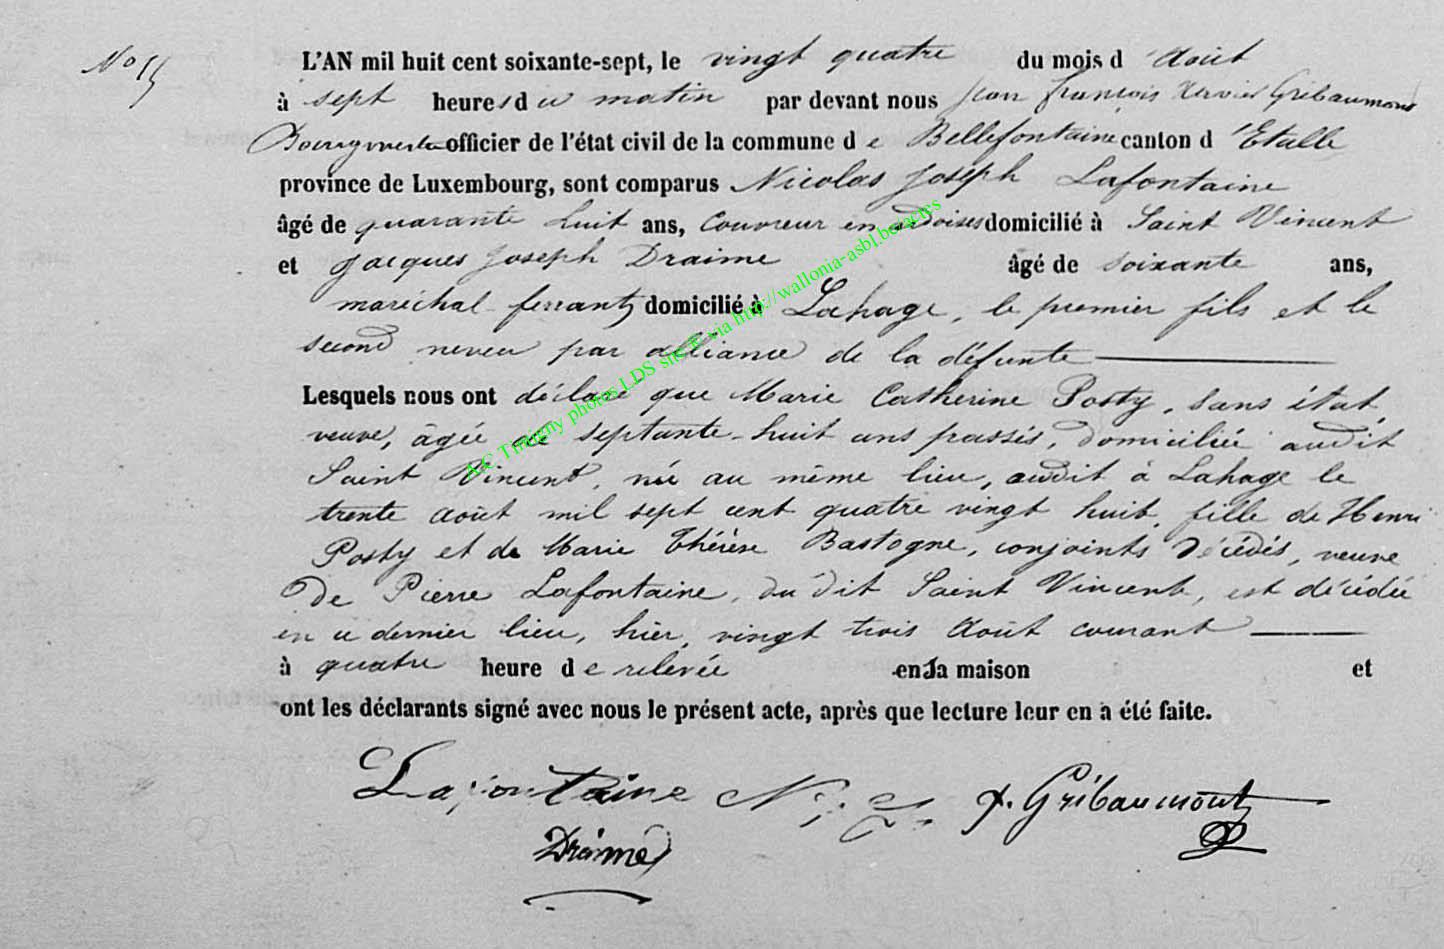 No 15
L'AN mil huit cent soixante-sept, le vingt quatre du mois d'Août
à sept heures du matin par devant nous Jean François Xavier Gribaumont
Bourgmestre officier de l'état civil de la commune de Bellefontaine canton d'Etalle
province de Luxembourg, sont comparus Nicolas Joseph Lafontaine
âgé de quarante huit ans, Couvreur en ardoises domicilié à Saint Vincent
et Jacques Joseph Draime âgé de soixante ans,
maréchal-ferrant, domicilié à Lahage, le premier fils et le
second neveu par alliance de la défunte
Lesquels nous ont déclaré que Marie Catherine Posty, sans état
veuve, âgée de septante-huit ans passés, domiciliée audit
Saint Vincent, née au même lieu, audit à Lahage le
trente août mil sept cent quatre vingt huit, fille de Henri
Posty et de Marie Thérèse Bastogne, conjoints décédés, veuve
de Pierre Lafontaine, du dit Saint Vincent, est décédée
en ce dernier lieu, hier, vingt trois Août courant
à quatre heure de relevée en sa maison et
ont les déclarants signé avec nous le présent acte, après que lecture leur en a été faite.
Lafontaine N. J. X. Gribaumont
Draime
A.C Tintigny photos LDS sur via http://wallonia-asbl.be/actes